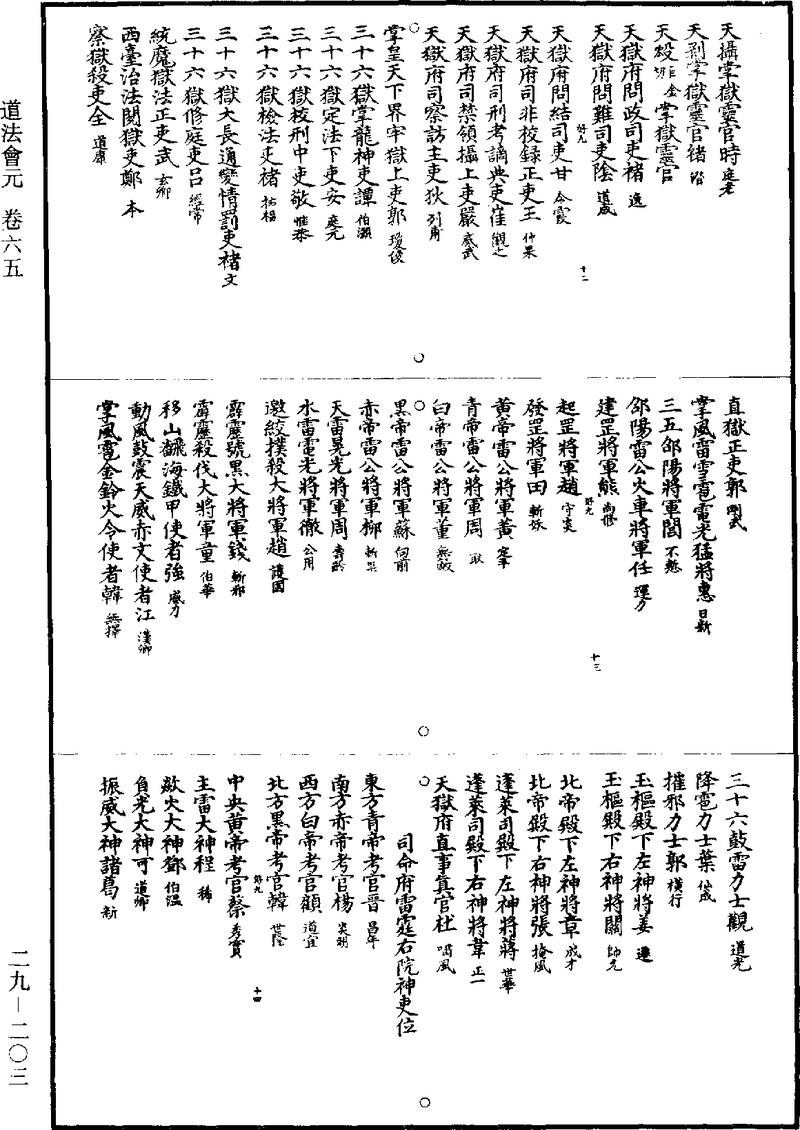 道法會元　卷六五
二九－二〇三
天攝掌獄靈官時庭老
天剝掌獄靈官緒
天殺非金掌獄靈官
天獄府問政司吏褚逸
天獄府問難司吏陰道威
天獄府問結司吏甘
十二
天獄府司非校錄正吏王仲果
天獄府司刑考謫典吏崔觀之
天獄府司禁領攝上吏嚴威武
天獄府司察訪主吏狄列甫
掌皇天下界牢獄上吏郭瓊俊
三十六獄掌龍神吏譚伯灝
三十六獄定法下吏安庭元
三十六獄校刑中吏敬惟恭
三十六獄檢法吏褚祐楊
三十六獄大長通變情罰吏褚文
三十六獄修庭吏呂經常
統魔獄法正吏武玄卿
西臺治法閱獄吏鄭本
察獄殺吏全道康
直獄正吏郭剛武
掌風雷雪雹電光猛將惠日新
三五郃陽將軍閻不愁
郃陽雷公火車將軍任運力
建罡將軍熊尚修
十三
起罡將軍趙守炎
發罡將軍田斬妖
黃帝雷公將軍黃定年
青帝雷公將軍周
白帝雷公將軍董無敵
黑帝雷公將軍蘇向前
赤帝雷公將軍柳
天雷晃光將軍周壽齡
水雷電光將軍徹公用
邀絞撲殺大將軍趙護國
霹靂號黑大將軍錢斬邪
霹靂殺伐大將軍童伯華
移山飜海鐵甲使者強威力
動風鼓震天威赤文使者江漢卿
掌風雹金鈴火令使者韓無擇
三十六鼓雷力士觀道光
降雹力士葉仙成
摧邪力士郭橫行
玉樞殿下左神將姜遷
玉樞殿下右神將關帥元
北帝殿下左神將章成才
北帝殿下右神將張掩風
蓬萊司殿下左神將蔣世華
蓬萊司殿下右神將韋正一
天獄府直事真官杜嘯風
司命府雷霆右院神吏位
東方青帝考官晉昌年
南方赤帝考官楊炎明
西方白帝考官顧道宜
北方黑帝考官韓世隆
十四
中央黃帝考官蔡秀實
主雷大神程稀
歘火大神鄧伯溫
負光大神可道卿
振威大神諸葛新